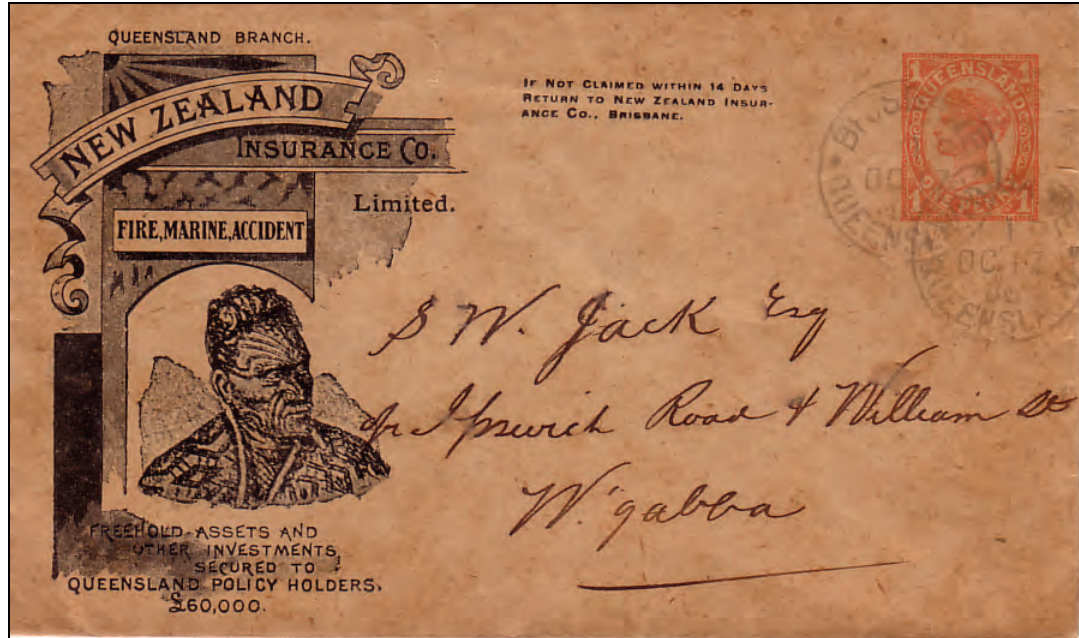 QUEENSLAND BRANCH.
NEW ZEALAND
INSURANCE CO.
Limited.
FIRE, MARINE, ACCIDENT
FREEHOLD-ASSETS AND
OTHER INVESTMENTS,
SECURED TO
QUEENSLAND POLICY HOLDERS.
£60,000.
IF NOT CLAIMED WITHIN 14 DAYS
RETURN TO NEW ZEALAND INSUR-
ANCE CO., BRISBANE.
1 QUEENSLAND 1
1 ONE PENNY 1
OC 17
S W. Jack Esq
Ipswich Road & William St
W'gabba